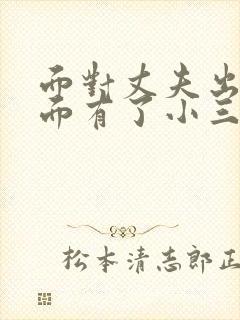 而對丈夫出
而有了小三
松本清志郎正